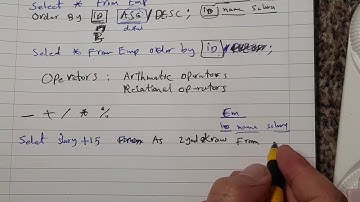 Select * From Emp
Order By ID ASC / DESC; ID name salary
Select * From Emp order by ID
Operators: Arthmatic operators
Relational oprutors
- + / * %
Em
ID name salary
Selct salary +15 As From